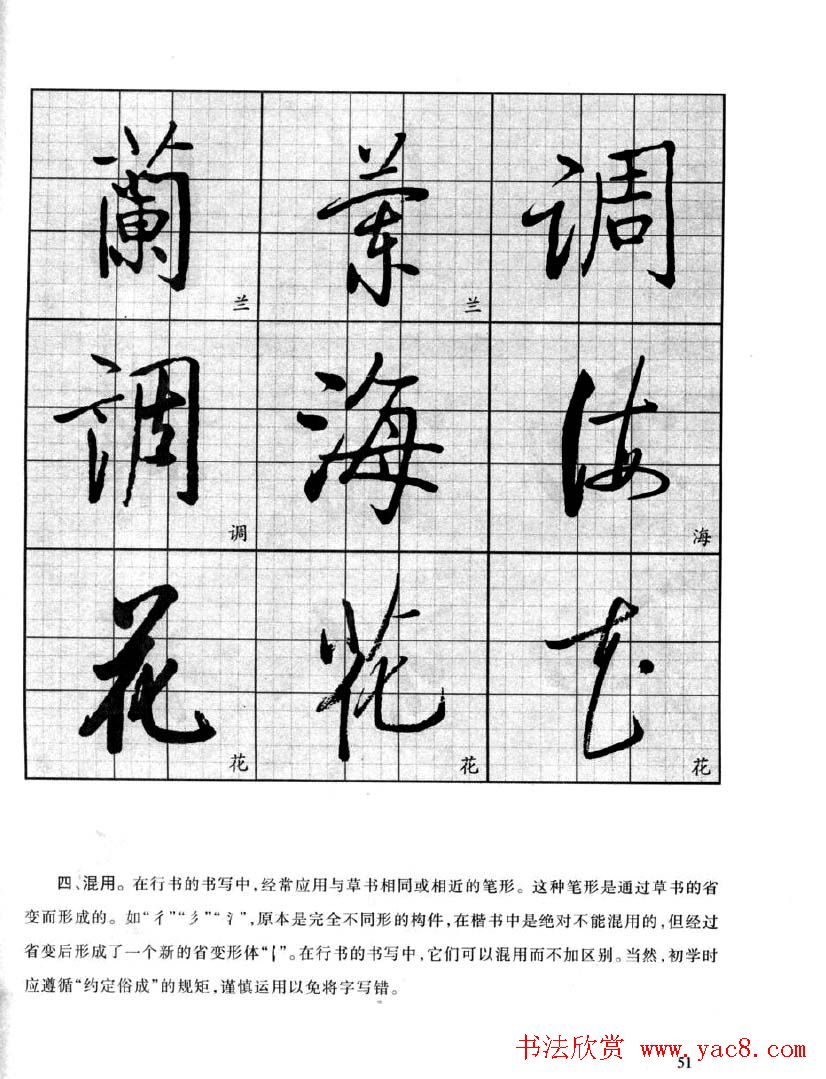 蘭 蘭 調
兰 兰
調 海 海
调 海
花 花 花
花 花 花
四、混用。在行书的书写中,经常应用与草书相同或相近的笔形。这种笔形是通过草书的省
变而形成的。如“彳”“彡”“氵”,原本是完全不同形的构件,在楷书中是绝对不能混用的,但经过
省变后形成了一个新的省变形体“”。在行书的书写中,它们可以混用而不加区别。当然,初学时
应遵循“约定俗成”的规矩,谨慎运用以免将字写错。
书法欣赏 www.yac8.com
51